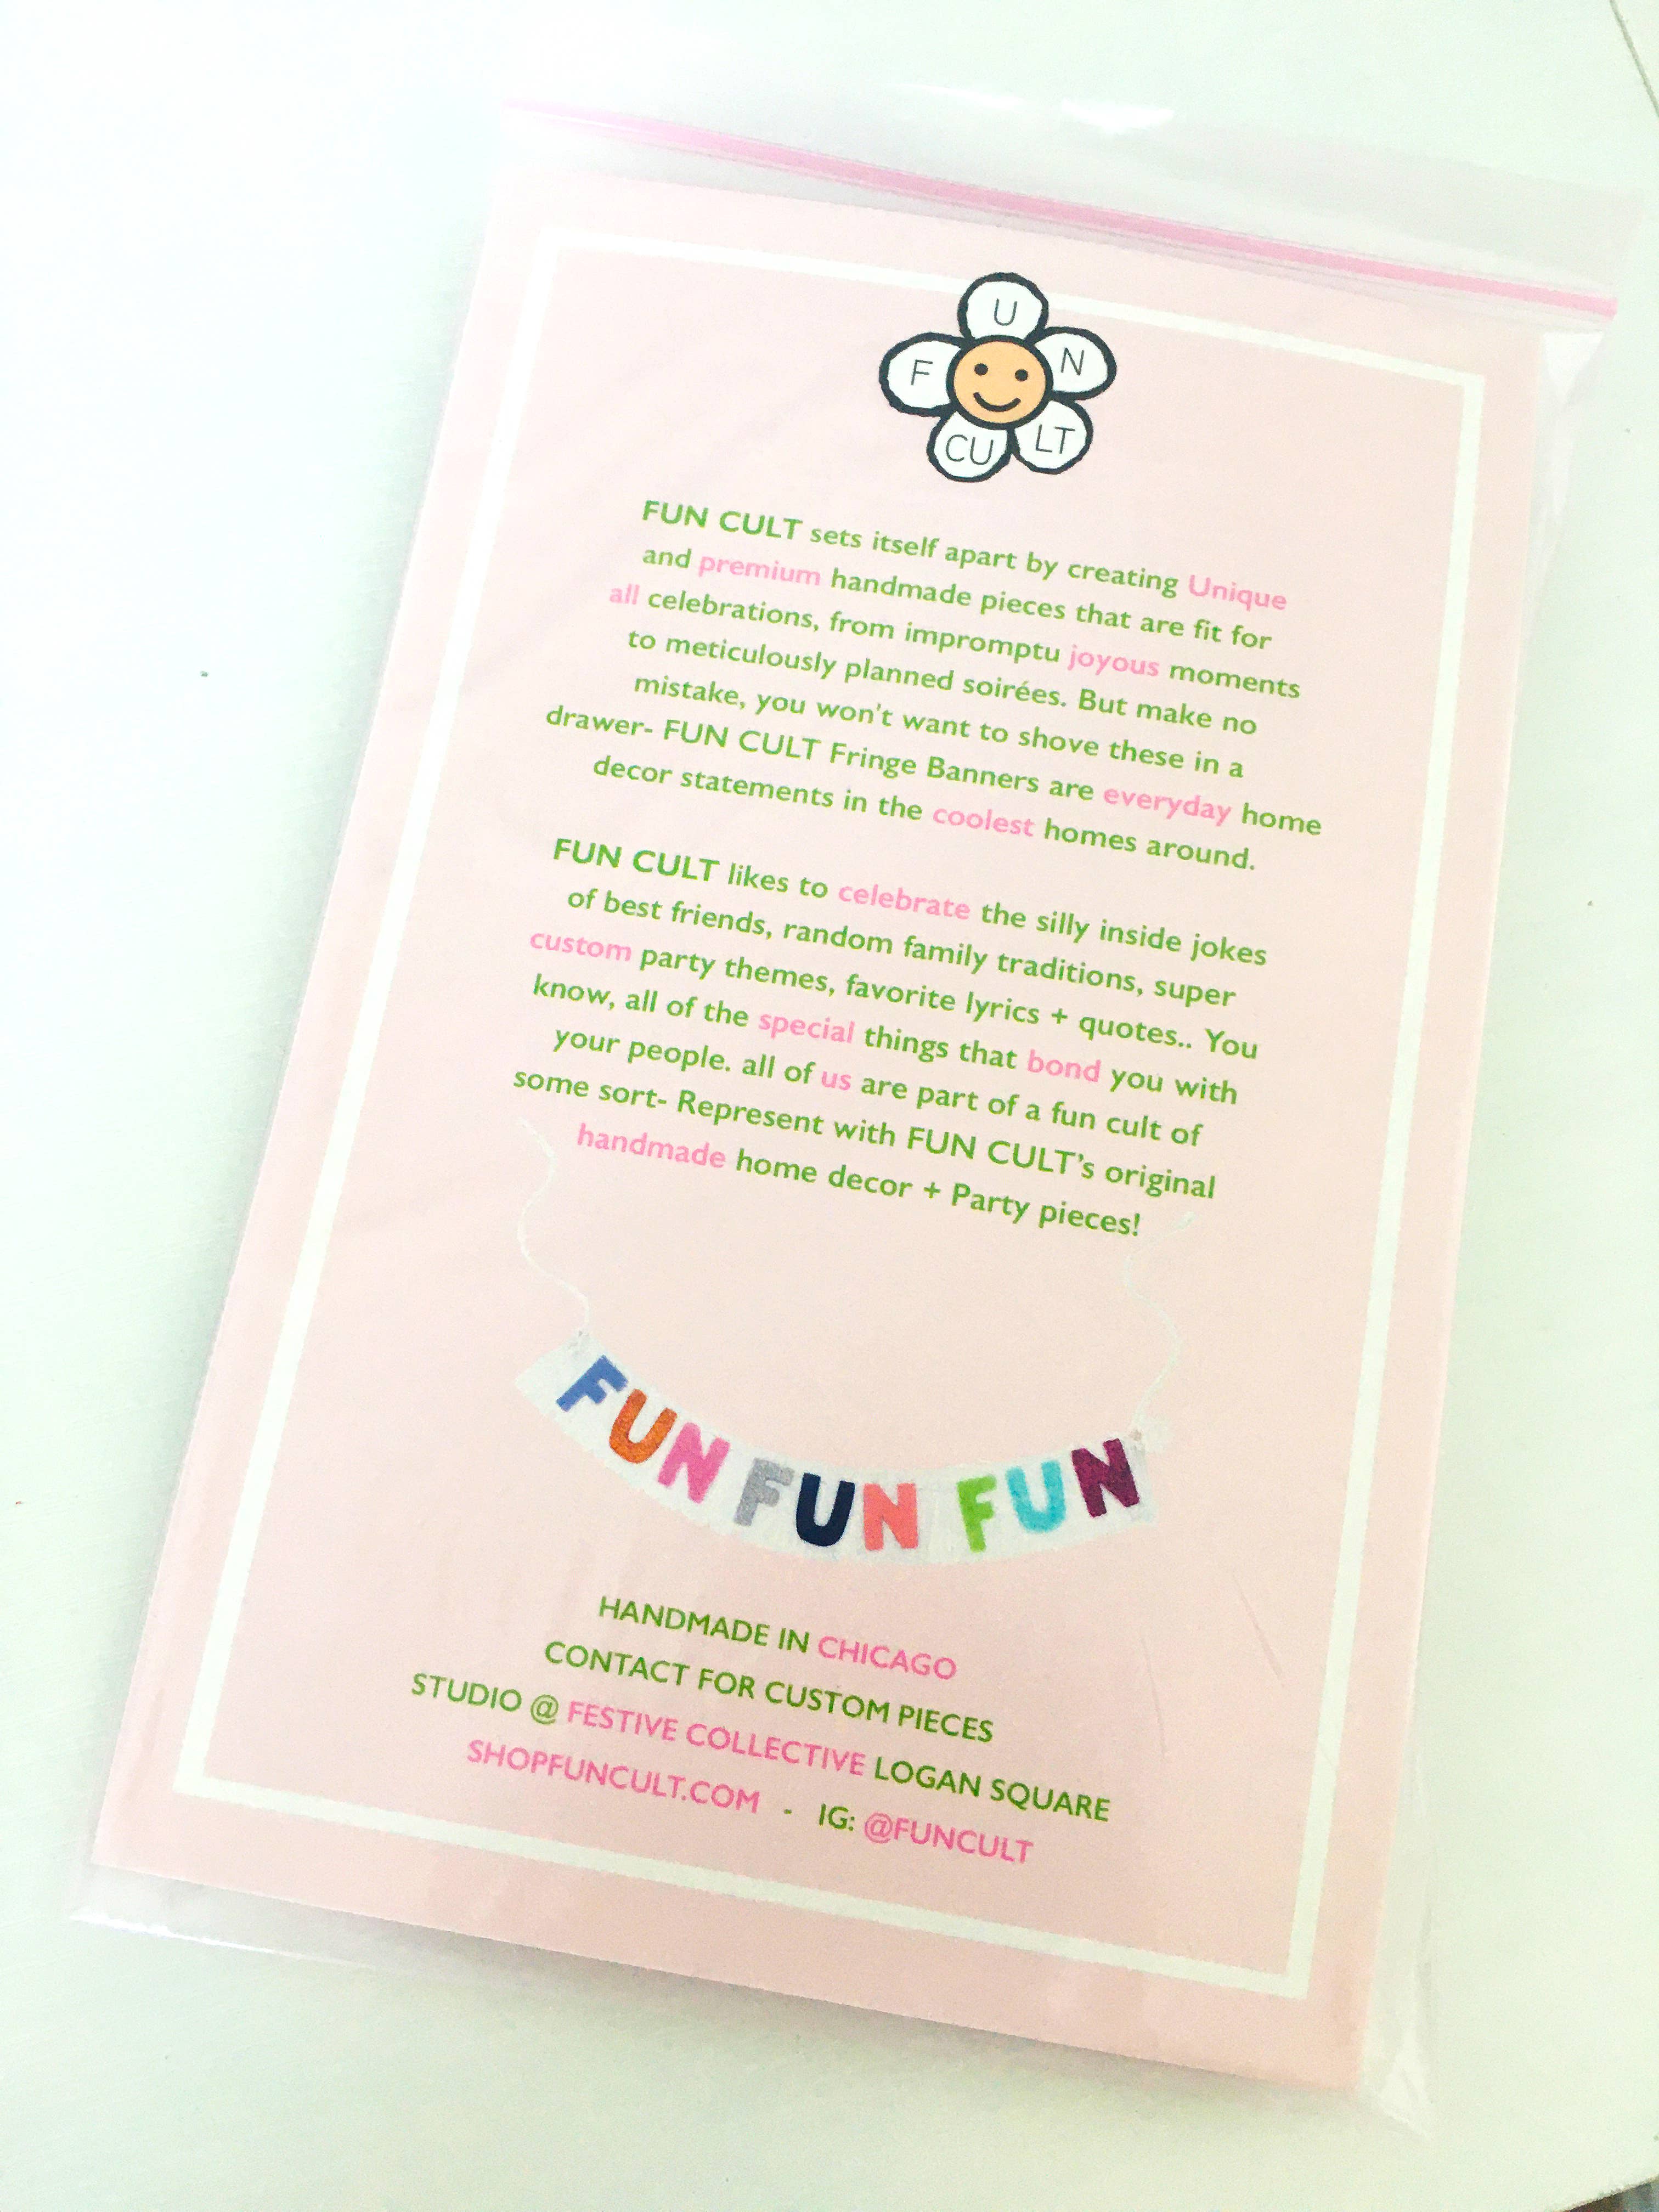 U
F N
CU LT
FUN CULT sets itself apart by creating Unique
and premium handmade pieces that are fit for
all celebrations, from impromptu joyous moments
to meticulously planned soirées. But make no
mistake, you won't want to shove these in a
drawer- FUN CULT Fringe Banners are everyday home
decor statements in the coolest homes around.
FUN CULT likes to celebrate the silly inside jokes
of best friends, random family traditions, super
custom party themes, favorite lyrics + quotes.. You
know, all of the special things that bond you with
your people. all of us are part of a fun cult of
some sort- Represent with FUN CULT's original
handmade home decor + Party pieces!
FUN FUN FUN
HANDMADE IN CHICAGO
CONTACT FOR CUSTOM PIECES
STUDIO @ FESTIVE COLLECTIVE LOGAN SQUARE
SHOPFUNCULT.COM - IG: @FUNCULT